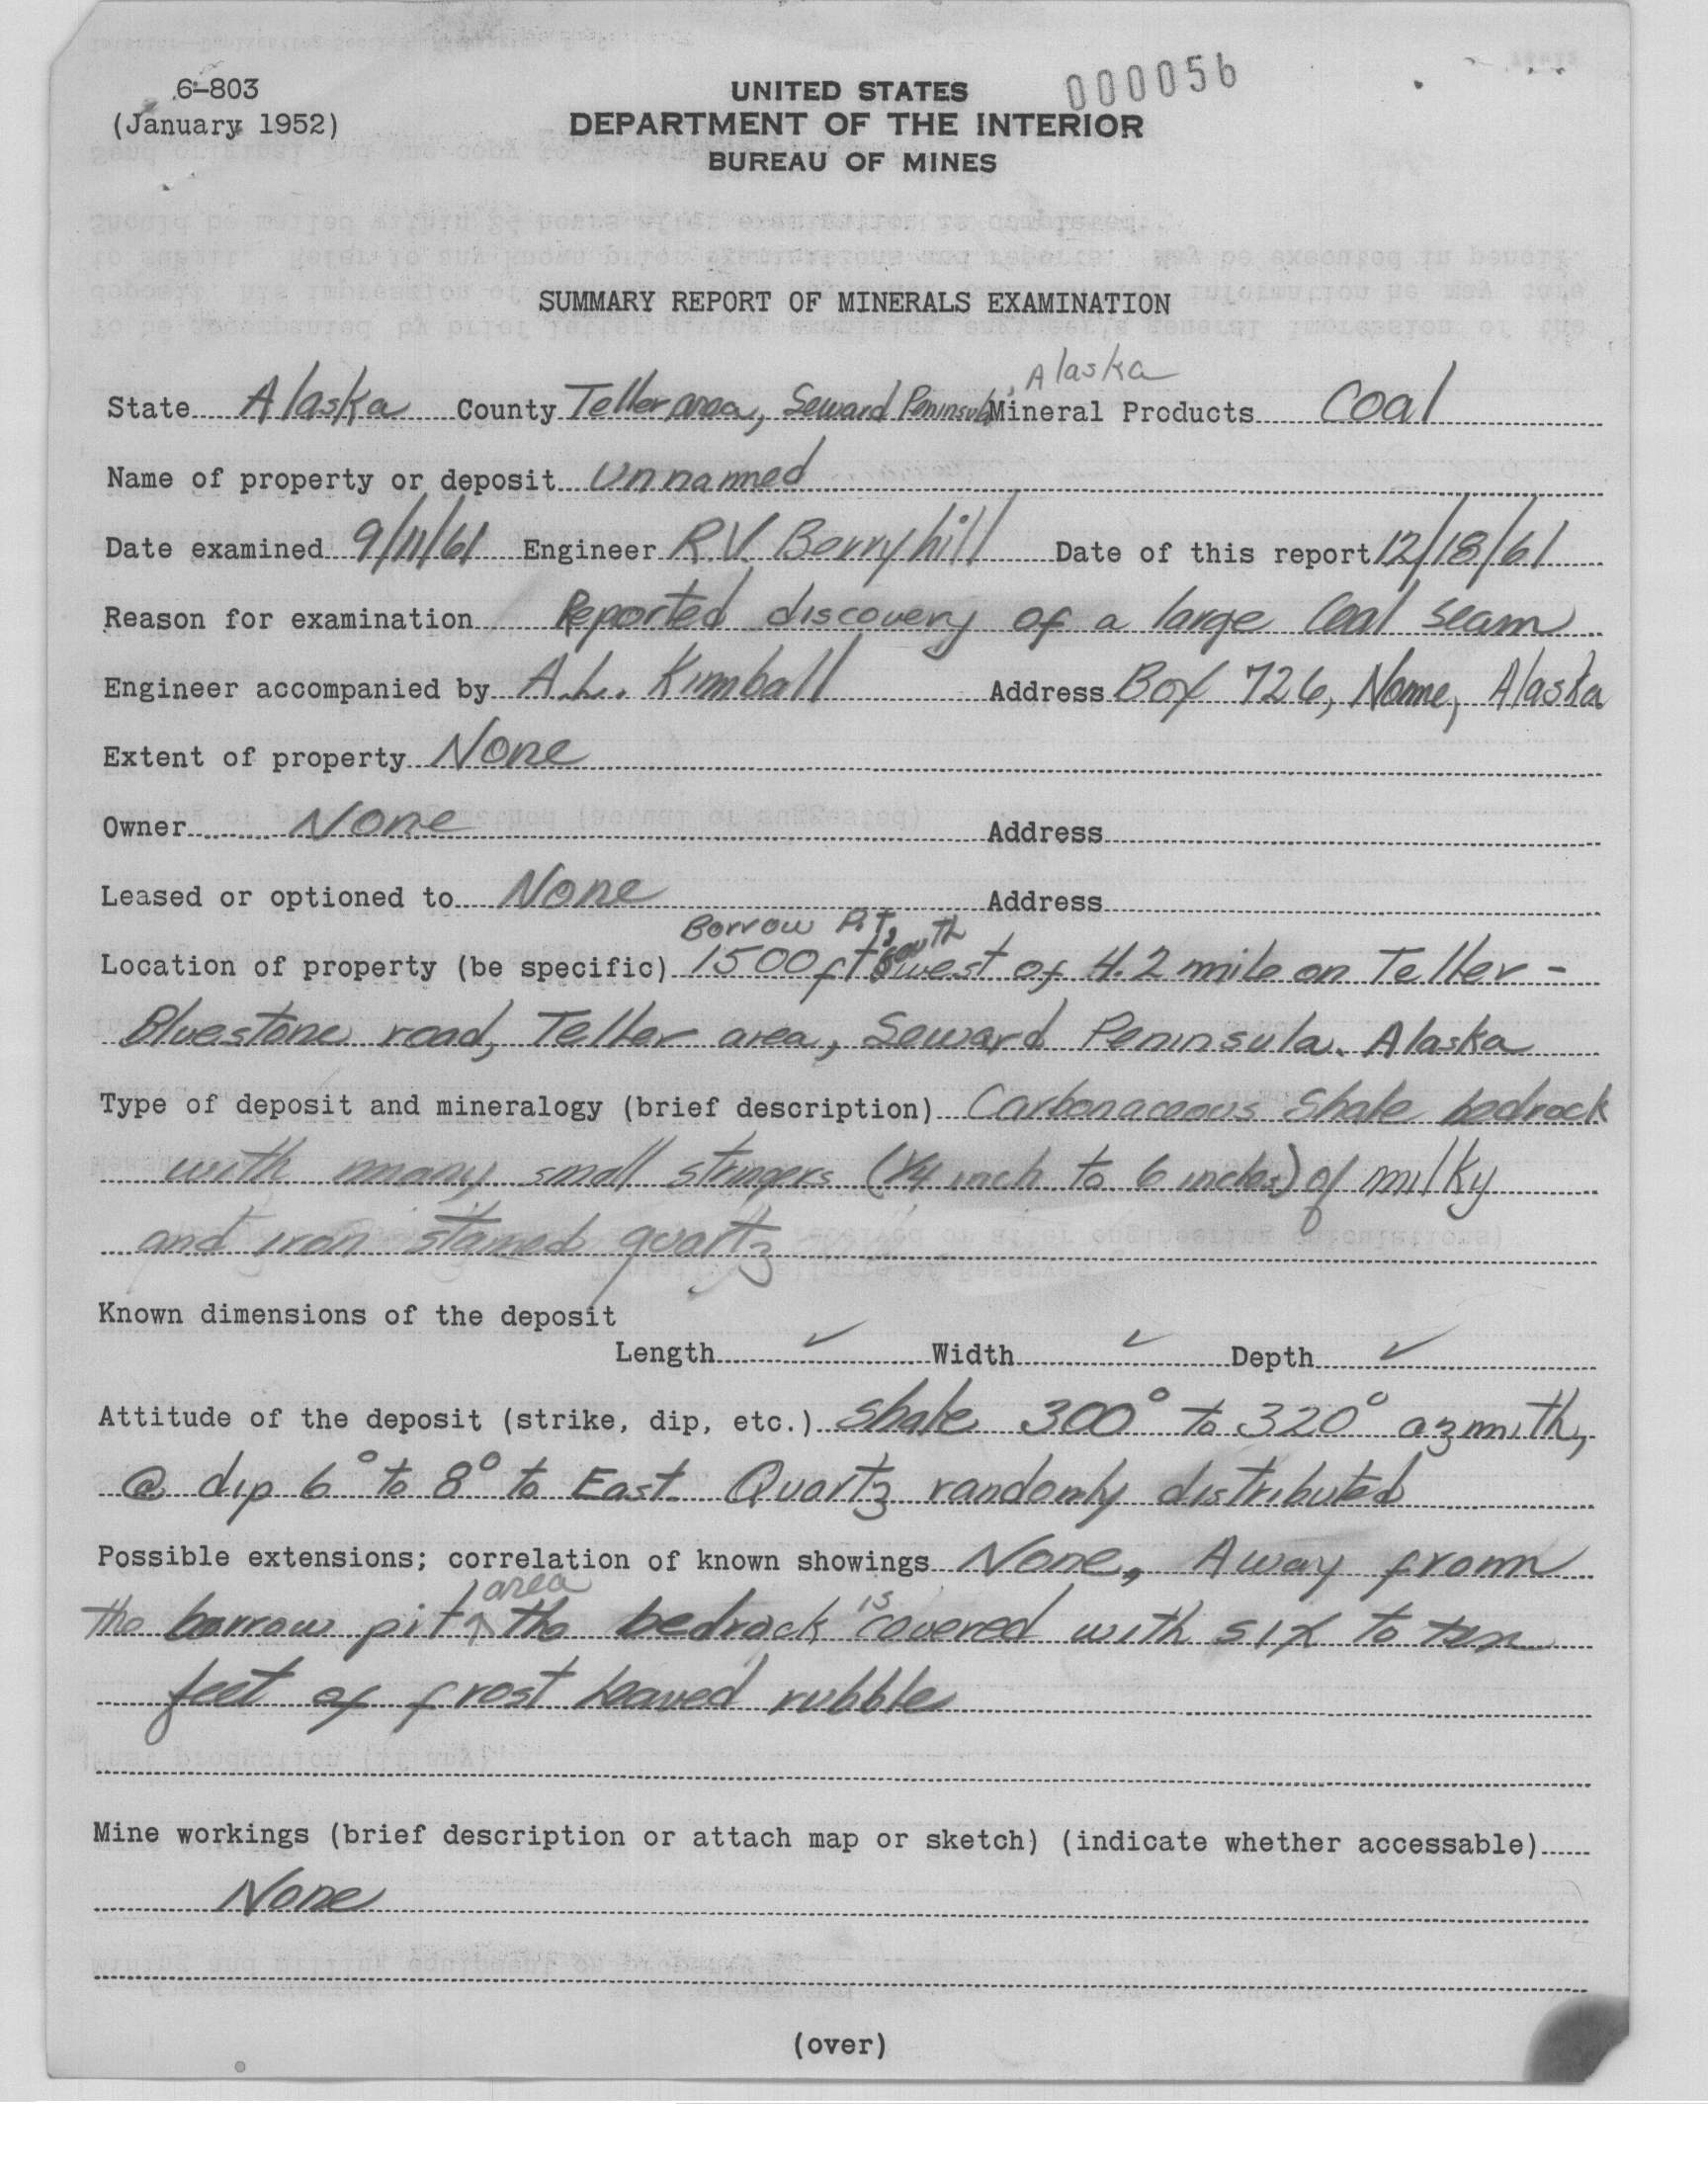 6-803
(January 1952)
000056
UNITED STATES
DEPARTMENT OF THE INTERIOR
BUREAU OF MINES
SUMMARY REPORT OF MINERALS EXAMINATION
State Alaska County Teller area, Seward Peninsula, Alaska Mineral Products Coal
Name of property or deposit Unnamed
Date examined 9/11/61 Engineer R.V. Berryhill Date of this report 12/18/61
Reason for examination Reported discovery of a large Coal seam
Engineer accompanied by A.L. Kimball Address Box 726, Nome, Alaska
Extent of property None
Owner None Address
Leased or optioned to None Address
Borrow Pit,
Location of property (be specific) 1500 ft southwest of 4.2 mile on Teller-
Bluestone road, Teller area, Seward Peninsula. Alaska
Type of deposit and mineralogy (brief description) Carbonaceous Shale bedrock
with many small stringers (1/4 inch to 6 inches) of milky
and iron stained quartz
Known dimensions of the deposit
Length ✓ Width ✓ Depth ✓
Attitude of the deposit (strike, dip, etc.) Shale 300° to 320° azmith,
@ dip 6° to 8° to East. Quartz randomly distributed
Possible extensions; correlation of known showings None, Away from
the borrow pit area the bedrock is covered with six to ten
feet of frost heaved rubble
Mine workings (brief description or attach map or sketch) (indicate whether accessable)
None
(over)